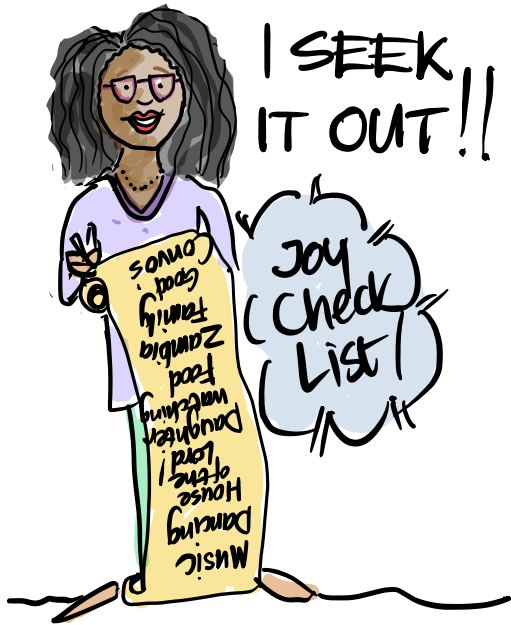 I SEEK
IT OUT!!
Joy
Check
List
Music
Dancing
House
of the
Lord!
Daughter
watching
Food
Zambia
Family
Good
Convos!